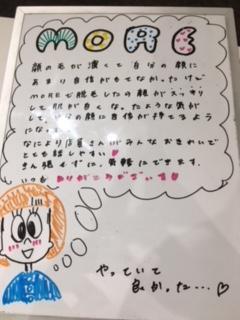 MORE
顔の毛が濃くて自分の顔に
あまり自信がもてなかったけど
MOREで脱毛したの顔がスッキリ
して肌が白くなったような気が
して、自分の顔に自信が持てるよう
にな
なにより店員さんがみんなきれいで
とても話しやすい♥
きん張もせずいつも気軽にできます。
いつもありがとうございます♥
やっていて
良かった…♡